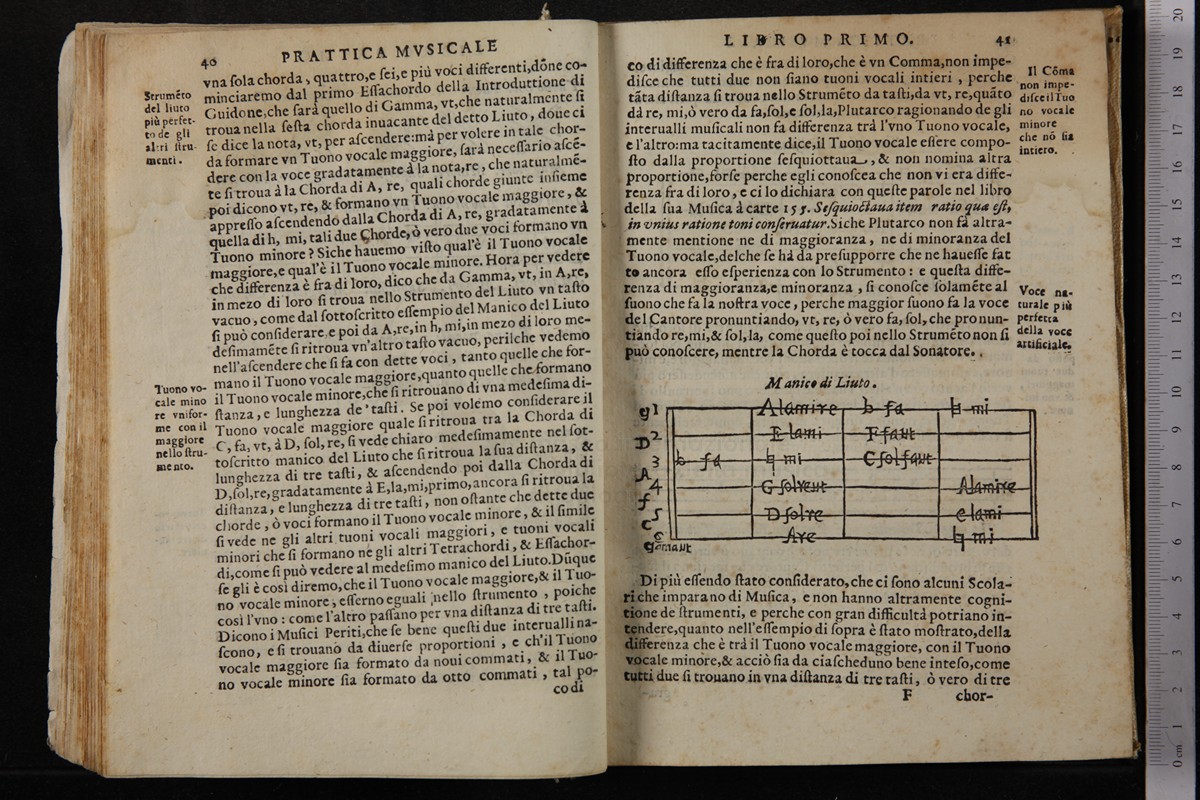 40
PRATTICA MVSICALE
vna ſola chorda, quattro, e ſei, e più voci differenti, dõne co-
minciaremo dal primo Eſſachordo della Introduttione di
Guidone, che ſarà quello di Gamma, vt, che naturalmente ſi
troua nella ſeſta chorda inuacante del detto Liuto, doue ci
ſe dice la nota, vt, per aſcendere: mà per volere in tale chor-
da formare vn Tuono vocale maggiore, ſarà neceſſario aſcẽ-
dere con la voce gradatamente à la nota, re, che naturalmẽ-
te ſi troua à la Chorda di A, re, quali chorde giunte inſieme
poi dicono vt, re, & formano vn Tuono vocale maggiore, &
appreſſo aſcendendo dalla Chorda di A, re, gradatamente à
quella di h, mi, tali due Chorde, ò vero due voci formano vn
Tuono minore? Siche hauemo viſto qual'è il Tuono vocale
maggiore, e qual'è il Tuono vocale minore. Hora per vedere
che differenza è fra di loro, dico che da Gamma, vt, in A, re,
in mezo di loro ſi troua nello Strumento del Liuto vn taſto
vacuo, come dal ſottoſcritto eſſempio del Manico del Liuto
ſi può conſiderare, e poi da A, re, in h, mi, in mezo di loro me-
deſimamẽte ſi ritroua vn'altro taſto vacuo, perilche vedemo
nell'aſcendere che ſi fa con dette voci, tanto quelle che for-
mano il Tuono vocale maggiore, quanto quelle che formano
il Tuono vocale minore, che ſi ritrouano di vna medeſima di-
ſtanza, e lunghezza de' taſti. Se poi volemo conſiderare il
Tuono vocale maggiore quale ſi ritroua tra la Chorda di
C, fa, vt, à D, ſol, re, ſi vede chiaro medeſimamente nel ſot-
toſcritto manico del Liuto che ſi ritroua la ſua diſtanza, &
lunghezza di tre taſti, & aſcendendo poi dalla Chorda di
D, ſol, re, gradatamente à E, la, mi, primo, ancora ſi ritroua la
diſtanza, e lunghezza di tre taſti, non oſtante che dette due
chorde, ò voci formano il Tuono vocale minore, & il ſimile
ſi vede ne gli altri tuoni vocali maggiori, e tuoni vocali
minori che ſi formano ne gli altri Tetrachordi, & Eſſachor-
di, come ſi può vedere al medeſimo manico del Liuto. Dũque
ſe gli è così diremo, che il Tuono vocale maggiore, & il Tuo-
no vocale minore, eſſerno eguali nello ſtrumento, poiche
così l'vno: come l'altro paſſano per vna diſtanza di tre taſti.
Dicono i Muſici Periti, che ſe bene queſti due interualli na-
ſcono, e ſi trouano da diuerſe proportioni, e ch'il Tuono
vocale maggiore ſia formato da noui commati, & il Tuo-
no vocale minore ſia formato da otto commati, tal po-
co di
Strumẽto
del liuto
più perfet-
to de gli
altri ſtru-
menti.
Tuono vo-
cale mino
re vnifor-
me con il
maggiore
nello ſtru-
mento.
LIBRO PRIMO.
41
co di differenza che è fra di loro, che è vn Comma, non impe-
diſce che tutti due non ſiano tuoni vocali intieri, perche
tãta diſtanza ſi troua nello Strumẽto da taſti, da vt, re, quãto
da re, mi, ò vero da fa, ſol, e ſol, la, Plutarco ragionando de gli
interualli muſicali non fa differenza trà l'vno Tuono vocale,
e l'altro: ma tacitamente dice, il Tuono vocale eſſere compo-
ſto dalla proportione ſeſquiottaua, & non nomina altra
proportione, forſe perche egli conoſcea che non vi era diffe-
renza fra di loro, e ci lo dichiara con queſte parole nel libro
della ſua Muſica à carte 155. Seſquioctaua item ratio quæ eſt,
in vnius ratione toni conſeruatur. Siche Plutarco non fà altra-
mente mentione ne di maggioranza, ne di minoranza del
Tuono vocale, delche ſe hà da preſupporre che ne haueſſe fat
to ancora eſſo eſperienza con lo Strumento: e queſta diffe-
renza di maggioranza, e minoranza, ſi conoſce ſolamẽte al
ſuono che fa la noſtra voce, perche maggior ſuono fa la voce
del Cantore pronuntiando, vt, re, ò vero fa, ſol, che pronun-
tiando re, mi, & ſol, la, come queſto poi nello Strumẽto non ſi
può conoſcere, mentre la Chorda è tocca dal Sonatore.
Il Cõma
non impe-
diſce il Tuo
no vocale
minore
che nõ ſia
intiero.
Voce na-
turale più
perfetta
della voce
artificiale.
Manico di Liuto.
g 1 Alamire b fa ♮ mi
D 2 E lami F faut
3 b fa ♮ mi C solfaut
A 4 G solreut Alamire
f 5 D solre e lami
c 6 Are ♮ mi
gamaut
Di più eſſendo ſtato conſiderato, che ci ſono alcuni Scola-
ri che imparano di Muſica, e non hanno altramente cogni-
tione de ſtrumenti, e perche con gran difficultà potriano in-
tendere, quanto nell'eſſempio di ſopra è ſtato moſtrato, della
differenza che è trà il Tuono vocale maggiore, con il Tuono
vocale minore, & acciò ſia da ciaſcheduno bene inteſo, come
tutti due ſi trouano in vna diſtanza di tre taſti, ò vero di tre
F
chor-